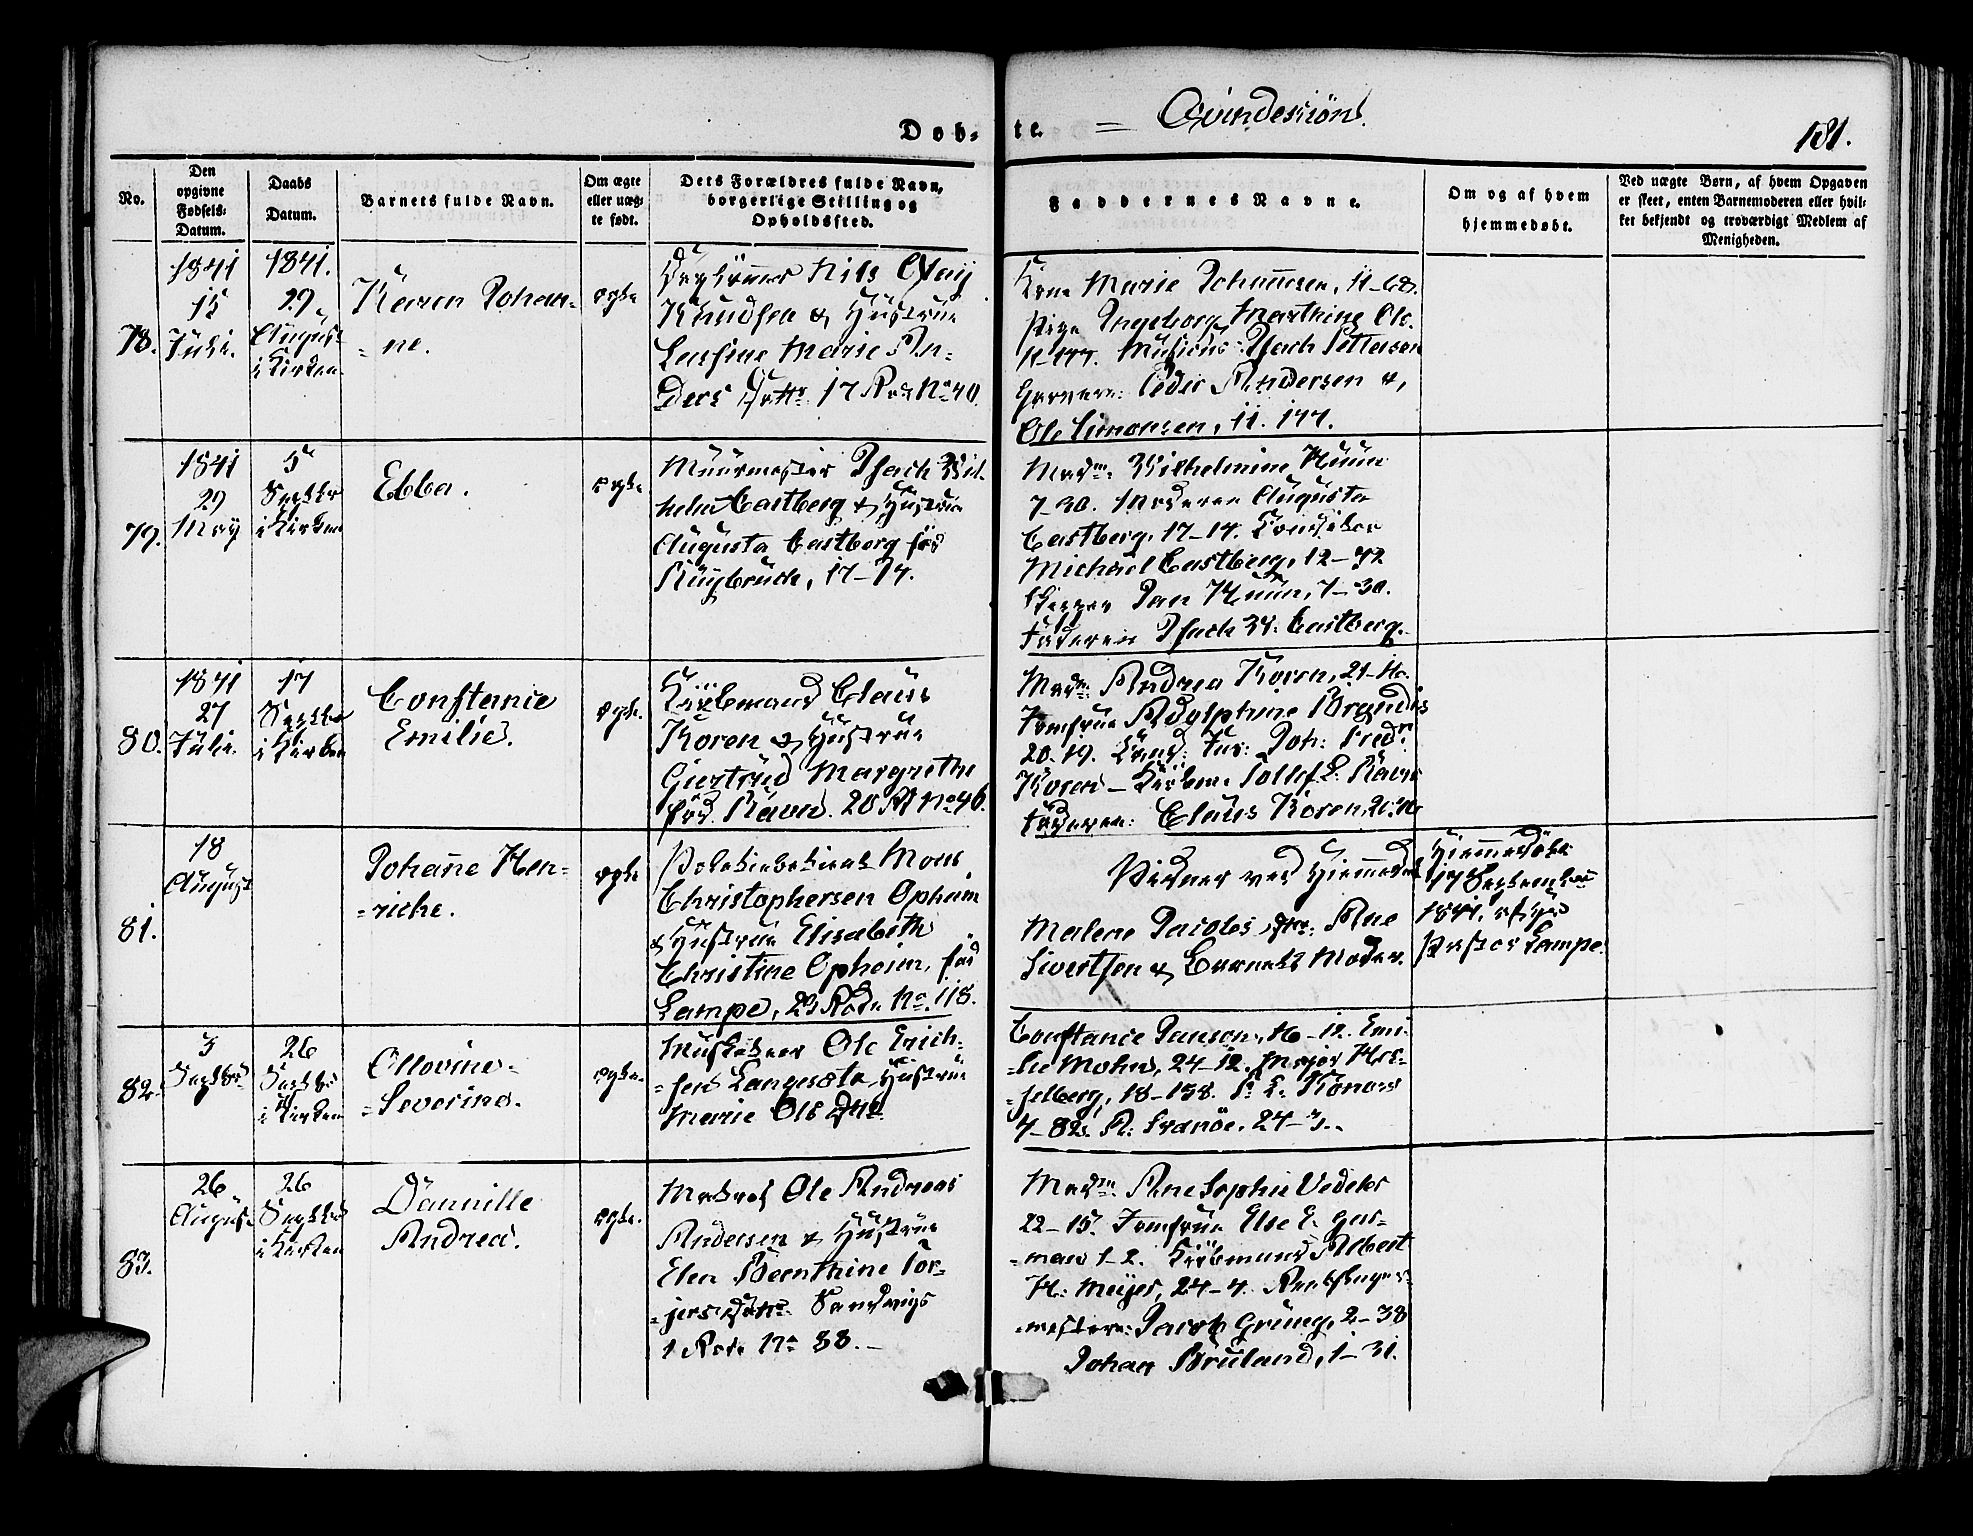 Døb- te. = Qvindekiøn.
181.
No.
Den opgivne Fødsels-Datum.
Daabs Datum.
Barnets fulde Navn.
Om ægte eller uægte født.
Dets Forældres fulde Navn, borgerlige Stilling og Opholdssted.
Faddernes Navne.
Om og af hvem hjemmedøbt.
Ved uægte Børn, af hvem Opgaven er skeet, enten Barnemoderen eller hvilket bekjendt og troværdigt Medlem af Menigheden.
78.
1841
15
Juli.
1841.
29
August
i Kirken
Karen Johan-
= ne.
ægte
Nils
Knudsen & Hustrue
Marie An-
ders Dotter 17 Rode No 40.
Kone Marie Johannesen, 11-68.
Pige Ingeborg Marthine Ols.
11-177. Musicus Isach Pettersen
Peder Andersen &,
Ole Simonsen, 11. 177.
79.
1841
29
May
5
Septbr
i Kirken
Ebba.
ægte
Muurmester Isach Wil-
helm Castberg & Hustrue
Augusta Castberg fød
17-14.
Madm: Wilhelmine Huun
7-30. Moderen Augusta
Castberg, 17-14.
Michael Castberg, 12-
Jan Huun, 7-30.
Faderen Isach W: Castberg.
80.
1841
27
Juli.
17
Septbr
i Kirken
Constanie
Emilie.
ægte.
Kiøbmand Claus
Koren & Hustrue
Giertrud Margrethe
fød Ravn. 20 R No 46.
Madm: Andrea Koren,
Jomfrue Adolphine Brandis
20. 19. Joh: Fredr
Koren - Kiøbm. Tollef L: Ravn
Faderen: Claus Koren,
81.
18
August
Johane Hen-
=riche.
ægte
Mons
Christophersen Opheim
& Hustrue Elisabeth
Christine Opheim, fød
Lampe, 23 Rode No. 118.
Vidner ved Hiemmedaab
Malene Jacobs dtr: Ane
Sivertsen & Barnets Moder.
Hiemmedøbt
17 September
1841, af Hr
Pastor Lampe.
82.
3
Septbr
26
Septbr
i Kirken
Ollovine
=Severine.
ægte.
Musketeer Ole Erich-
=sen Langesæte Hustrue
Marie Ols Dtr
Constance Janson, 16-12. Emi-
=lie Mohn, 24-12. Major Hes-
=selberg, 18-158. P: L: Konow
7-82. A: Svanøe. 24-3.
83.
26
August
26
Septbr
i Kirken
Dannille
Andrea.
ægte.
Matros Ole Andreas
Andersen & Hustrue
Elen Bernthine Tor-
=jers Dotter. Sandvigs
1 Rode No 88.
Madm: Ane Sophie Vedeler
22-15. Jomfrue Else E. Gar-
=man 1-2. Kiøbmand Albert
H: Meijer, 24-4.
Jacob Grüng, 2-38
Johan Bruland, 1-31.